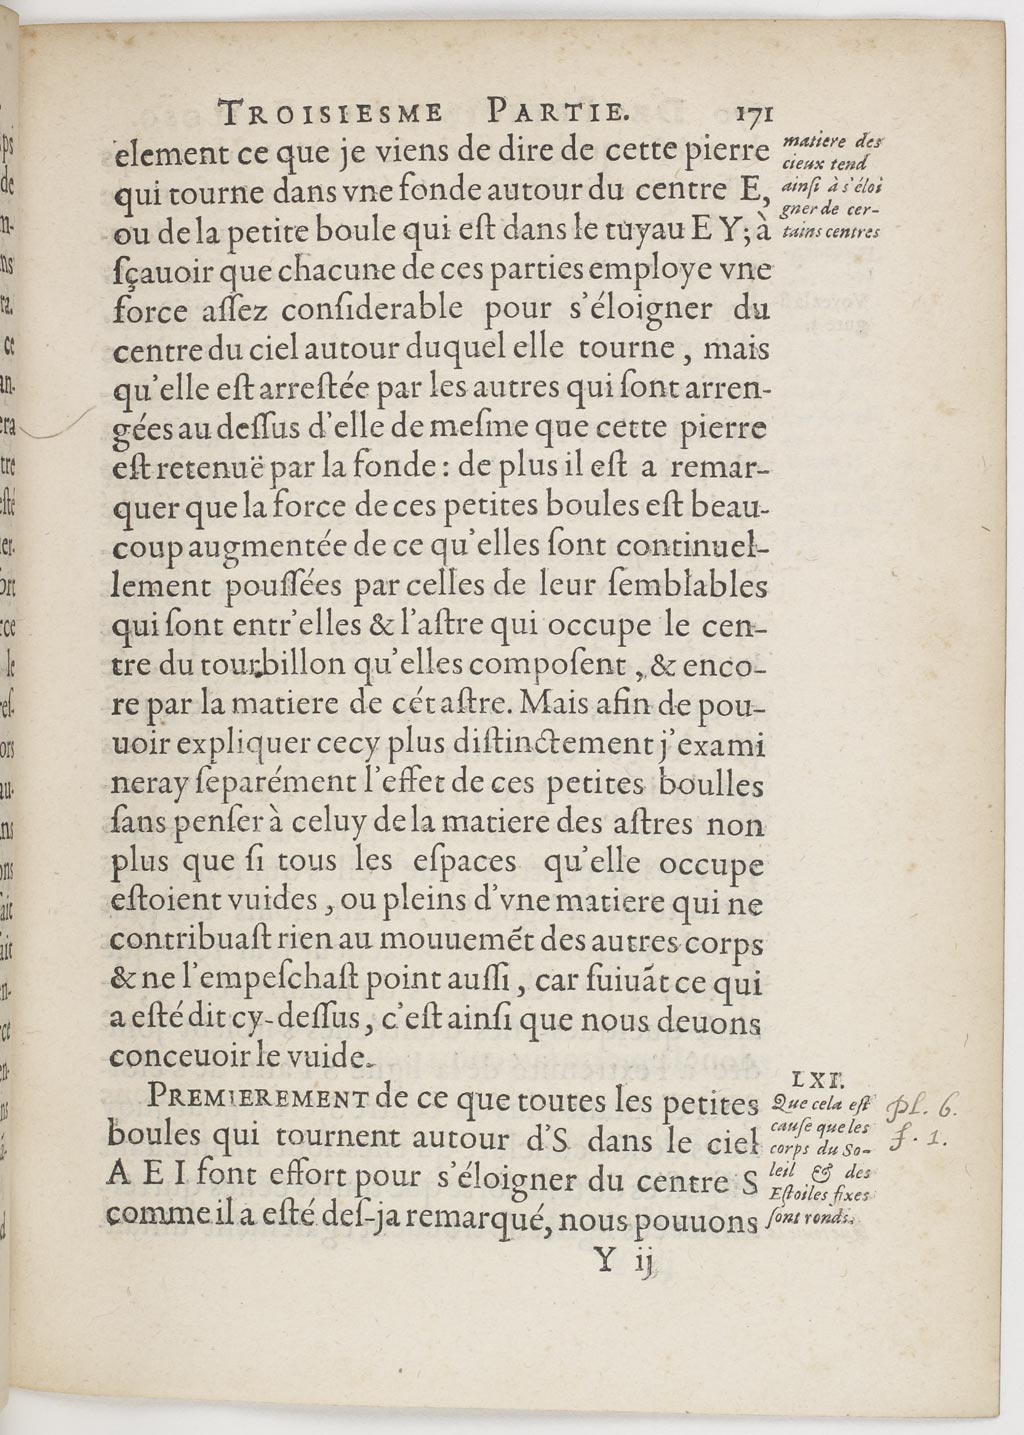 TROISIESME PARTIE. 171
element ce que je viens de dire de cette pierre
qui tourne dans vne fonde autour du centre E,
ou de la petite boule qui eſt dans le tuyau E Y; à
ſçauoir que chacune de ces parties employe vne
force aſſez conſiderable pour s'éloigner du
centre du ciel autour duquel elle tourne, mais
qu'elle eſt arreſtée par les autres qui ſont arren-
gées au deſſus d'elle de meſme que cette pierre
eſt retenuë par la fonde: de plus il eſt a remar-
quer que la force de ces petites boules eſt beau-
coup augmentée de ce qu'elles ſont continuel-
lement pouſſées par celles de leur ſemblables
qui ſont entr'elles & l'aſtre qui occupe le cen-
tre du tourbillon qu'elles compoſent, & enco-
re par la matiere de cét aſtre. Mais afin de pou-
uoir expliquer cecy plus diſtinctement j'exami
neray ſeparément l'effet de ces petites boulles
ſans penſer à celuy de la matiere des aſtres non
plus que ſi tous les eſpaces qu'elle occupe
eſtoient vuides, ou pleins d'vne matiere qui ne
contribuaſt rien au mouuemẽt des autres corps
& ne l'empeſchaſt point auſſi, car ſuiuãt ce qui
a eſté dit cy-deſſus, c'eſt ainſi que nous deuons
conceuoir le vuide.
PREMIEREMENT de ce que toutes les petites
boules qui tournent autour d'S dans le ciel
A E I font effort pour s'éloigner du centre S
comme il a eſté deſ-ja remarqué, nous pouuons
Y ij
matiere des
cieux tend
ainſi à s'éloi
gner de cer-
tains centres
LXI.
Que cela eſt
cauſe que les
corps du So-
leil & des
Eſtoiles fixes
ſont ronds.
pl. 6.
f. 1.